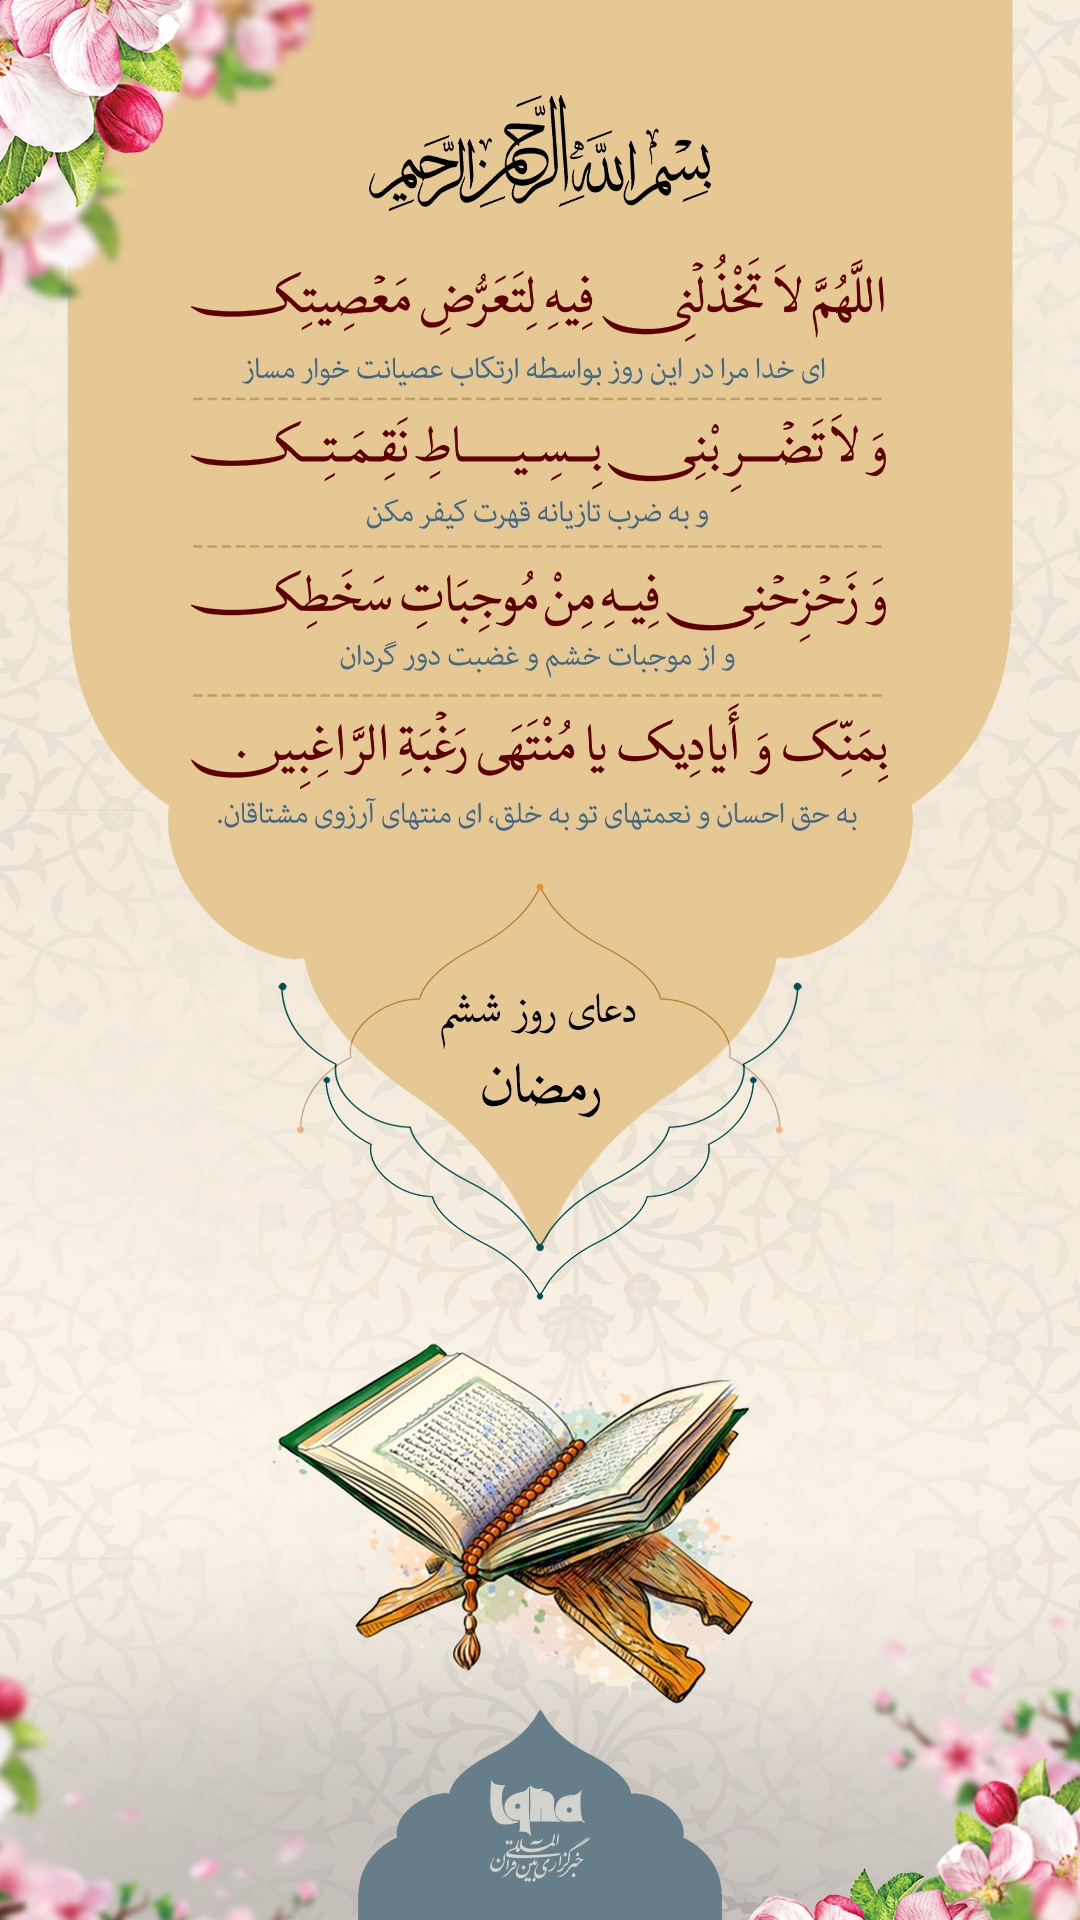 بِسْمِ اللَّهِ الرَّحْمنِ الرَّحِيمِ
اللَّهُمَّ لاَ تَخْذُلْنِی فِيهِ لِتَعَرُّضِ مَعْصِيتِک
ای خدا مرا در این روز بواسطه ارتکاب عصیانت خوار مساز
وَ لاَ تَضْرِبْنِی بِسِیاطِ نَقِمَتِک
و به ضرب تازیانه قهرت کیفر مکن
وَ زَحْزِحْنِی فِیهِ مِنْ مُوجِبَاتِ سَخَطِک
و از موجبات خشم و غضبت دور گردان
بِمَنِّک وَ أَیادِیک یا مُنْتَهَى رَغْبَةِ الرَّاغِبِین.
به حق احسان و نعمتهای تو به خلق، ای منتهای آرزوی مشتاقان.
دعای روز ششم
رمضان
iqna
خبرگزاری بین المللی قرآن